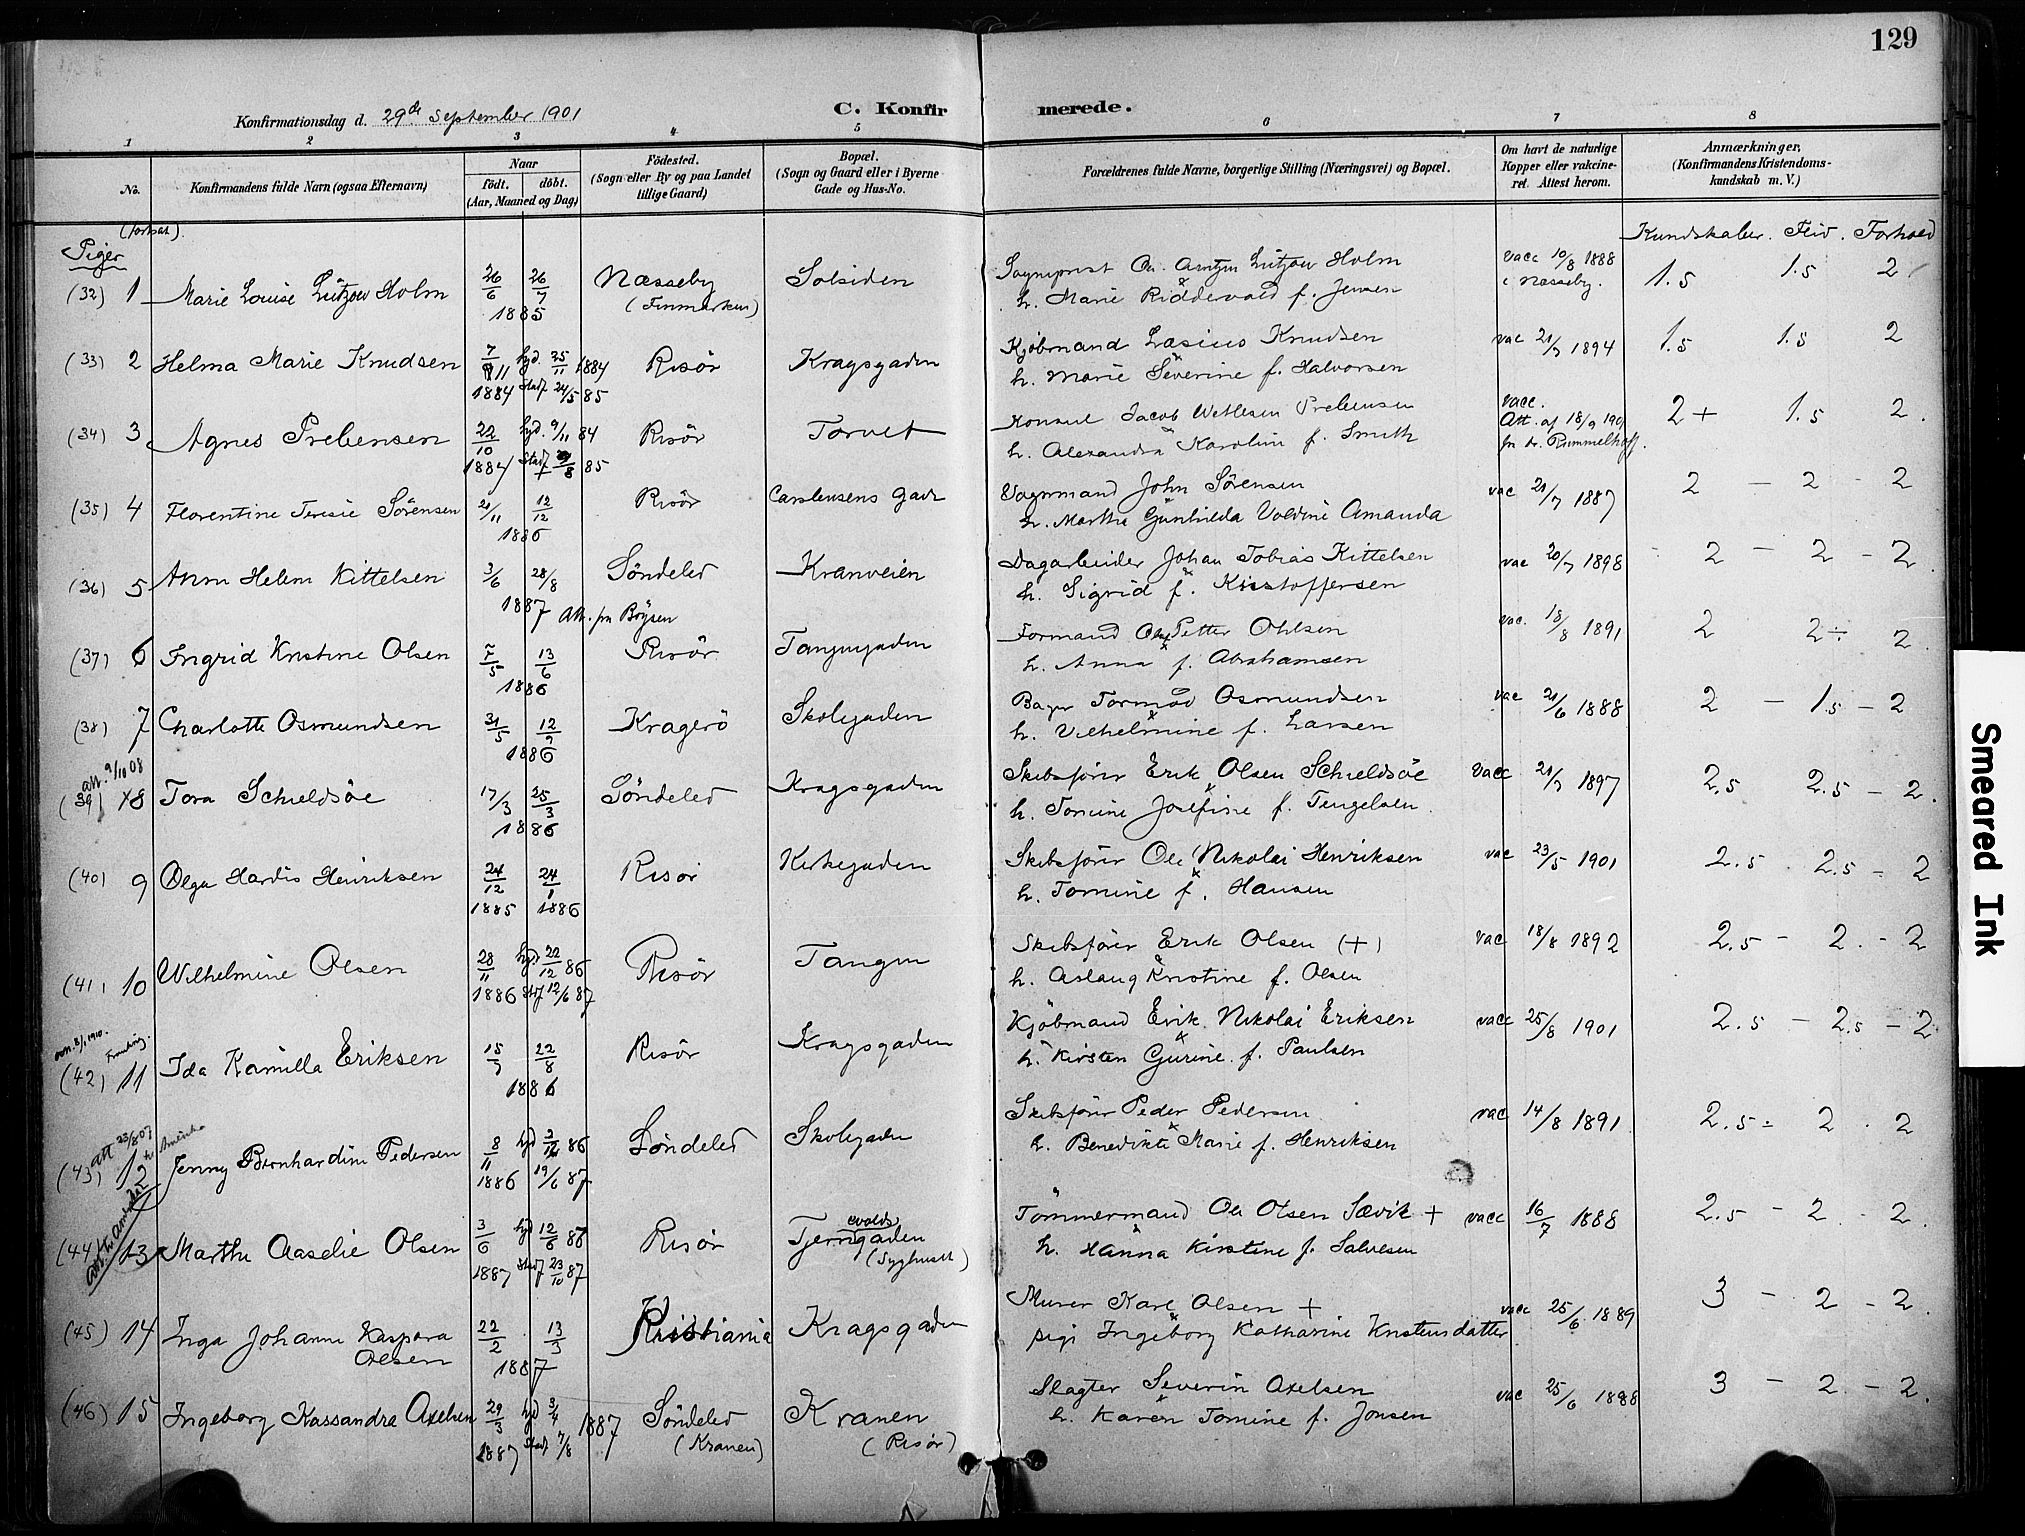 129
Konfirmationsdag d. 29de September 1901
C. Konfirmerede.
1 2 3 4 5 6 7 8
No.
Konfirmandens fulde Navn (ogsaa Efternavn)
Naar
födt. döbt.
(Aar, Maaned og Dag)
Födested.
(Sogn eller By og paa Landet
tillige Gaard)
Bopæl.
(Sogn og Gaard eller i Byerne
Gade og Hus-No.
Forældrenes fulde Navne, borgerlige Stilling (Næringsvei) og Bopæl.
Om havt de naturlige
Kopper eller vakcine-
ret. Attest herom.
Anmærkninger,
(Konfirmandens Kristendoms-
kundskab m. V.)
(fortsat)
Piger
Kundskaber. Flid. Forhold
(32) 1 Marie Louise Lützow Holm 26/6 26/7 1885 Næsseby (Finmarken) Solsiden
Sogneprest Ole Arntzen Lützow Holm
h. Marie Riddervold f. Jensen
vacc 10/8 1888 i Næsseby. 1.5 1.5 2
(33) 2 Helma Marie Knudsen 7/11 1884 hjd. 25/11 1884 Stadf 24/5 85 Risör Kragsgaden
Kjöbmand Lasius Knudsen
h. Marie Severine f. Halvorsen
vac 21/7 1894 1.5 1.5 2
(34) 3 Agnes Prebensen 22/10 1884 hjd. 9/11 84 Stadf 8 85 Risör Torvet
Konsul Jacob Wetlesen Prebensen
h. Alexandra Karoline f. Smith
vacc. Att. af 18/9 1901 fra dr. Rummelhoff. 2+ 1.5 2.
(35) 4 Florentine Teresie Sörensen 21/11 12/12 1886 Risör Carstensens Gade
Vognmand John Sörensen
h. Marthe Gunhilda Valdine Amanda
vac 21/7 1887 2 - 2 - 2
(36) 5 Anna Helene Kittelsen 3/6 28/8 1887 Att. fra Böysen Söndeled Kranveien
Dagarbeider Johan Tobias Kittelsen
h. Sigrid f. Kristoffersen
vac 20/7 1898 - 2 - 2 - 2
(37) 6 Ingrid Kristine Olsen 7/5 13/6 1886 Risör Tangengaden
Formand Ole Petter Ohlsen
h. Anna f. Abrahamsen
vac. 18/8 1891 2 2÷ 2.
(38) 7 Charlotte Osmundsen 31/5 12/9 1886 Kragerö Skolegaden
Bager Tormod Osmundsen
h. Vilhelmine f. Larsen
vac 21/6 1888 2 - 1.5 - 2
att. 9/10 08
(39) 8 Tora Schieldsöe 17/3 25/3 1886 Söndeled Kragsgaden
Skibsförer Erik Olsen Schieldsöe
h. Tomine Josefine f. Tengelsen
Vacc 21/7 1897 2.5 2.5 - 2.
(40) 9 Olga Hardis Henriksen 24/12 1885 24/1 1886 Risör Kirkegaden
Skibsförer Ole Nikolai Henriksen
h. Tomine f. Hansen
vac 23/5 1901 2.5 2.5 - 2
(41) 10 Wilhelmine Olsen 28/11 1886 hjd 22/12 86 Stdf 12/6 87 Risör Tangen
Skibsförer Erik Olsen (+)
h. Aslaug Kristine f. Olsen
vac 18/8 1892 2.5 - 2 - 2
(42) 11 Ida Kamilla Eriksen 15/7 22/8 1886 Risör Kragsgaden
Kjöbmand Erik Nikolai Eriksen
h. Kirsten Gurine f. Paulsen
vacc 25/8 1901 2.5 - 2.5 - 2
att 23/8 07 til Amerika
(43) 12 Jenny Bernhardine Pedersen 8/11 1886 hjd 86 19/6 87 Söndeled Skolegaden
Skibsförer Peder Pedersen
h. Benedikte Marie f. Henriksen
vac 14/8 1891 2.5 ÷ 2 . 2
(44) 13 Marthe Aaselie Olsen 3/6 1887 hjd 12/6 86 Stadf 23/10 87 Risör Tjernsvoldsgaden (Syghuset)
Tömmermand Ole Olsen Sævik +
h. Hanna Kirstine f. Salvesen
vacc 16/7 1888 2.5 - 2 - 2.
(45) 14 Inga Johanne Kaspara Olsen 22/2 13/3 1887 Kristiania Kragsgaden
Murer Karl Olsen +
pige Ingeborg Katharine Kristensdatter
vacc 25/6 1889 3 - 2 - 2.
(46) 15 Ingeborg Kassandra Axelsen 29/3 1887 hjd 3/4 Stadf 7/8 1887 Söndeled (Kranen) Kranen (Risör)
Slagter Severin Axelsen
h. Karen Tomine f. Jonsen
vac 25/6 1888 3 - 2 - 2.
Smeared Ink